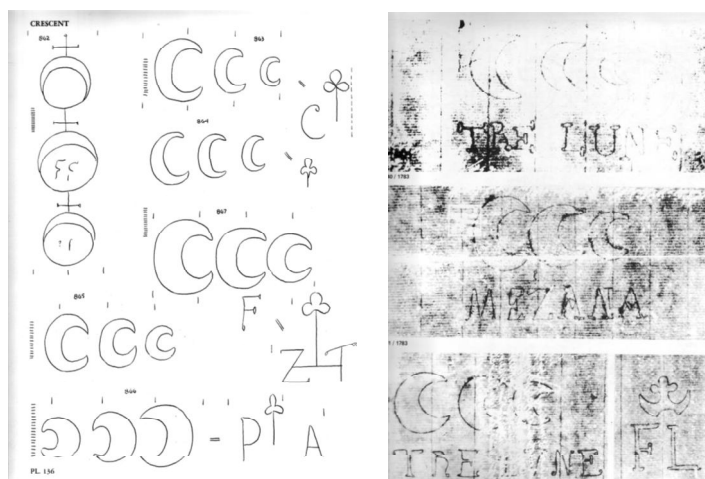 CRESCENT
862
863
C
864
867
F
Z
865
866
= P A
PL. 136
TRE LUNE
/ 1783
MEZANA
/ 1783
TRE LUNE
FL